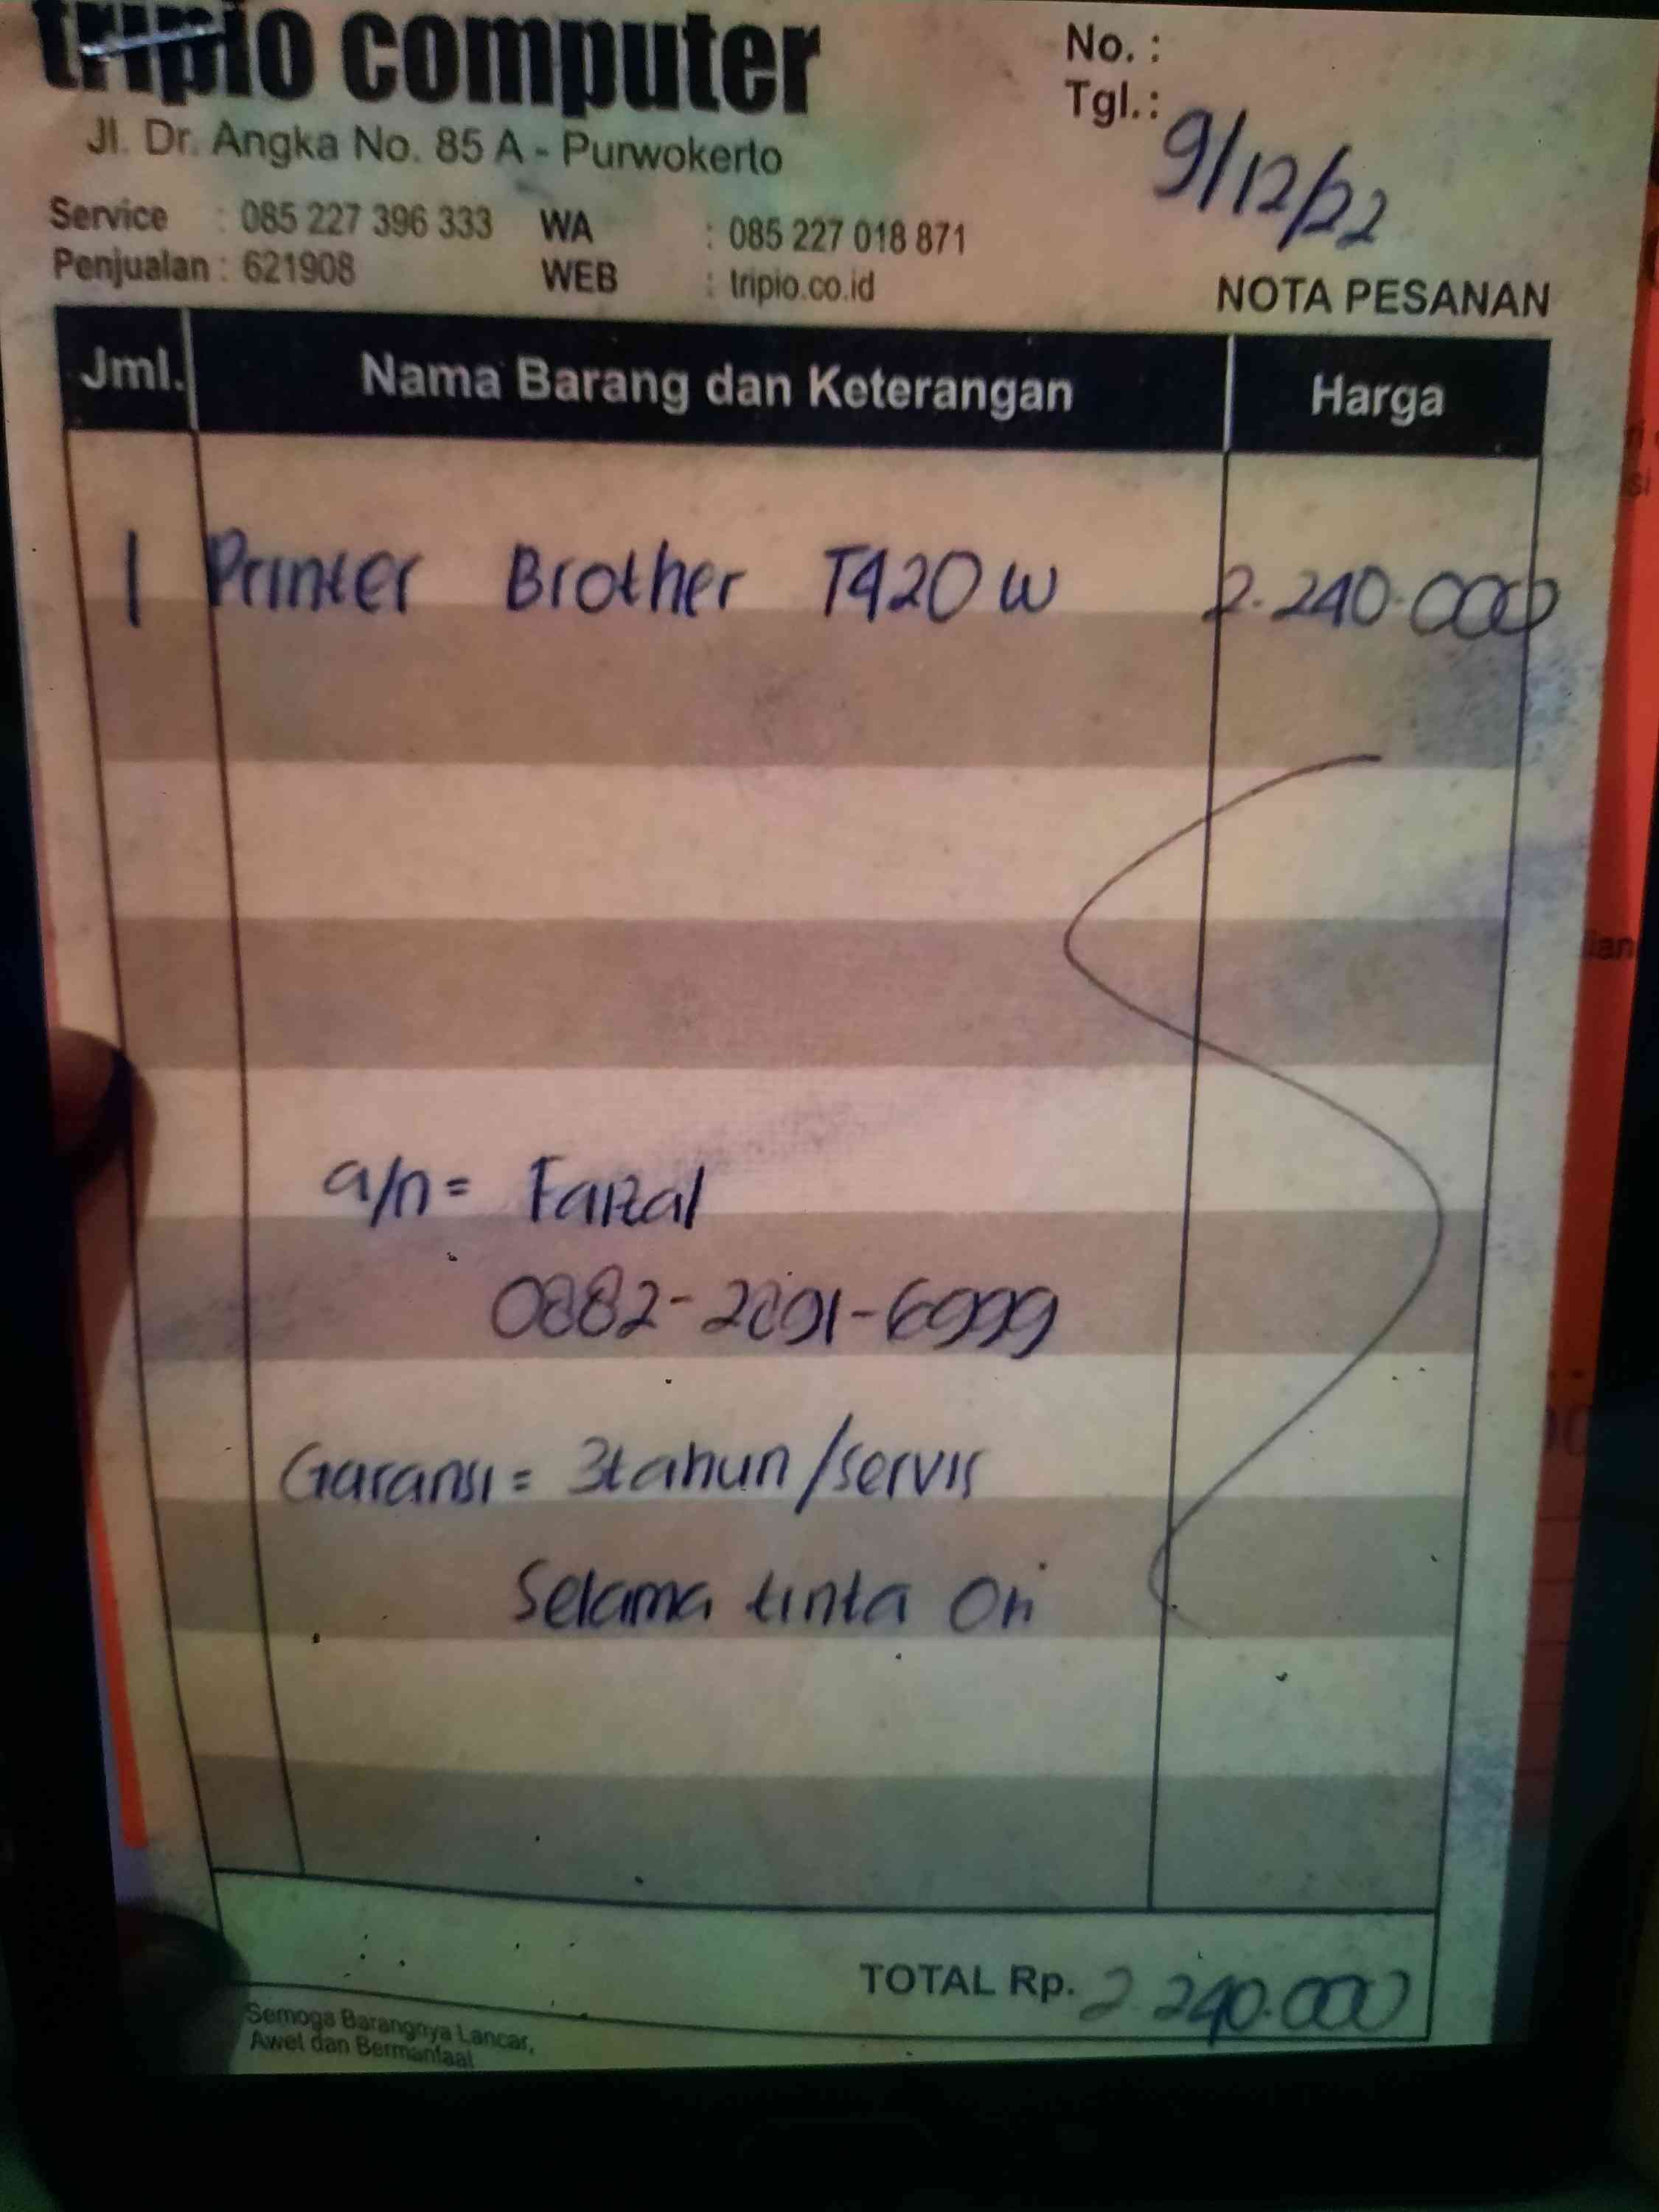 tripio computer
Jl. Dr. Angka No. 85 A - Purwokerto
Service : 085 227 396 333 WA : 085 227 018 871
Penjualan : 621908 WEB : tripio.co.id
No. :
Tgl.: 9/12/22
NOTA PESANAN
Jml. Nama Barang dan Keterangan Harga
1 Printer Brother T420 W 2.240.000
a/n = Faizal
Garansi = 3 tahun / servis
Selama tinta Ori
TOTAL Rp. 2.240.000
Semoga Barangnya Lancar,
Awet dan Bermanfaat